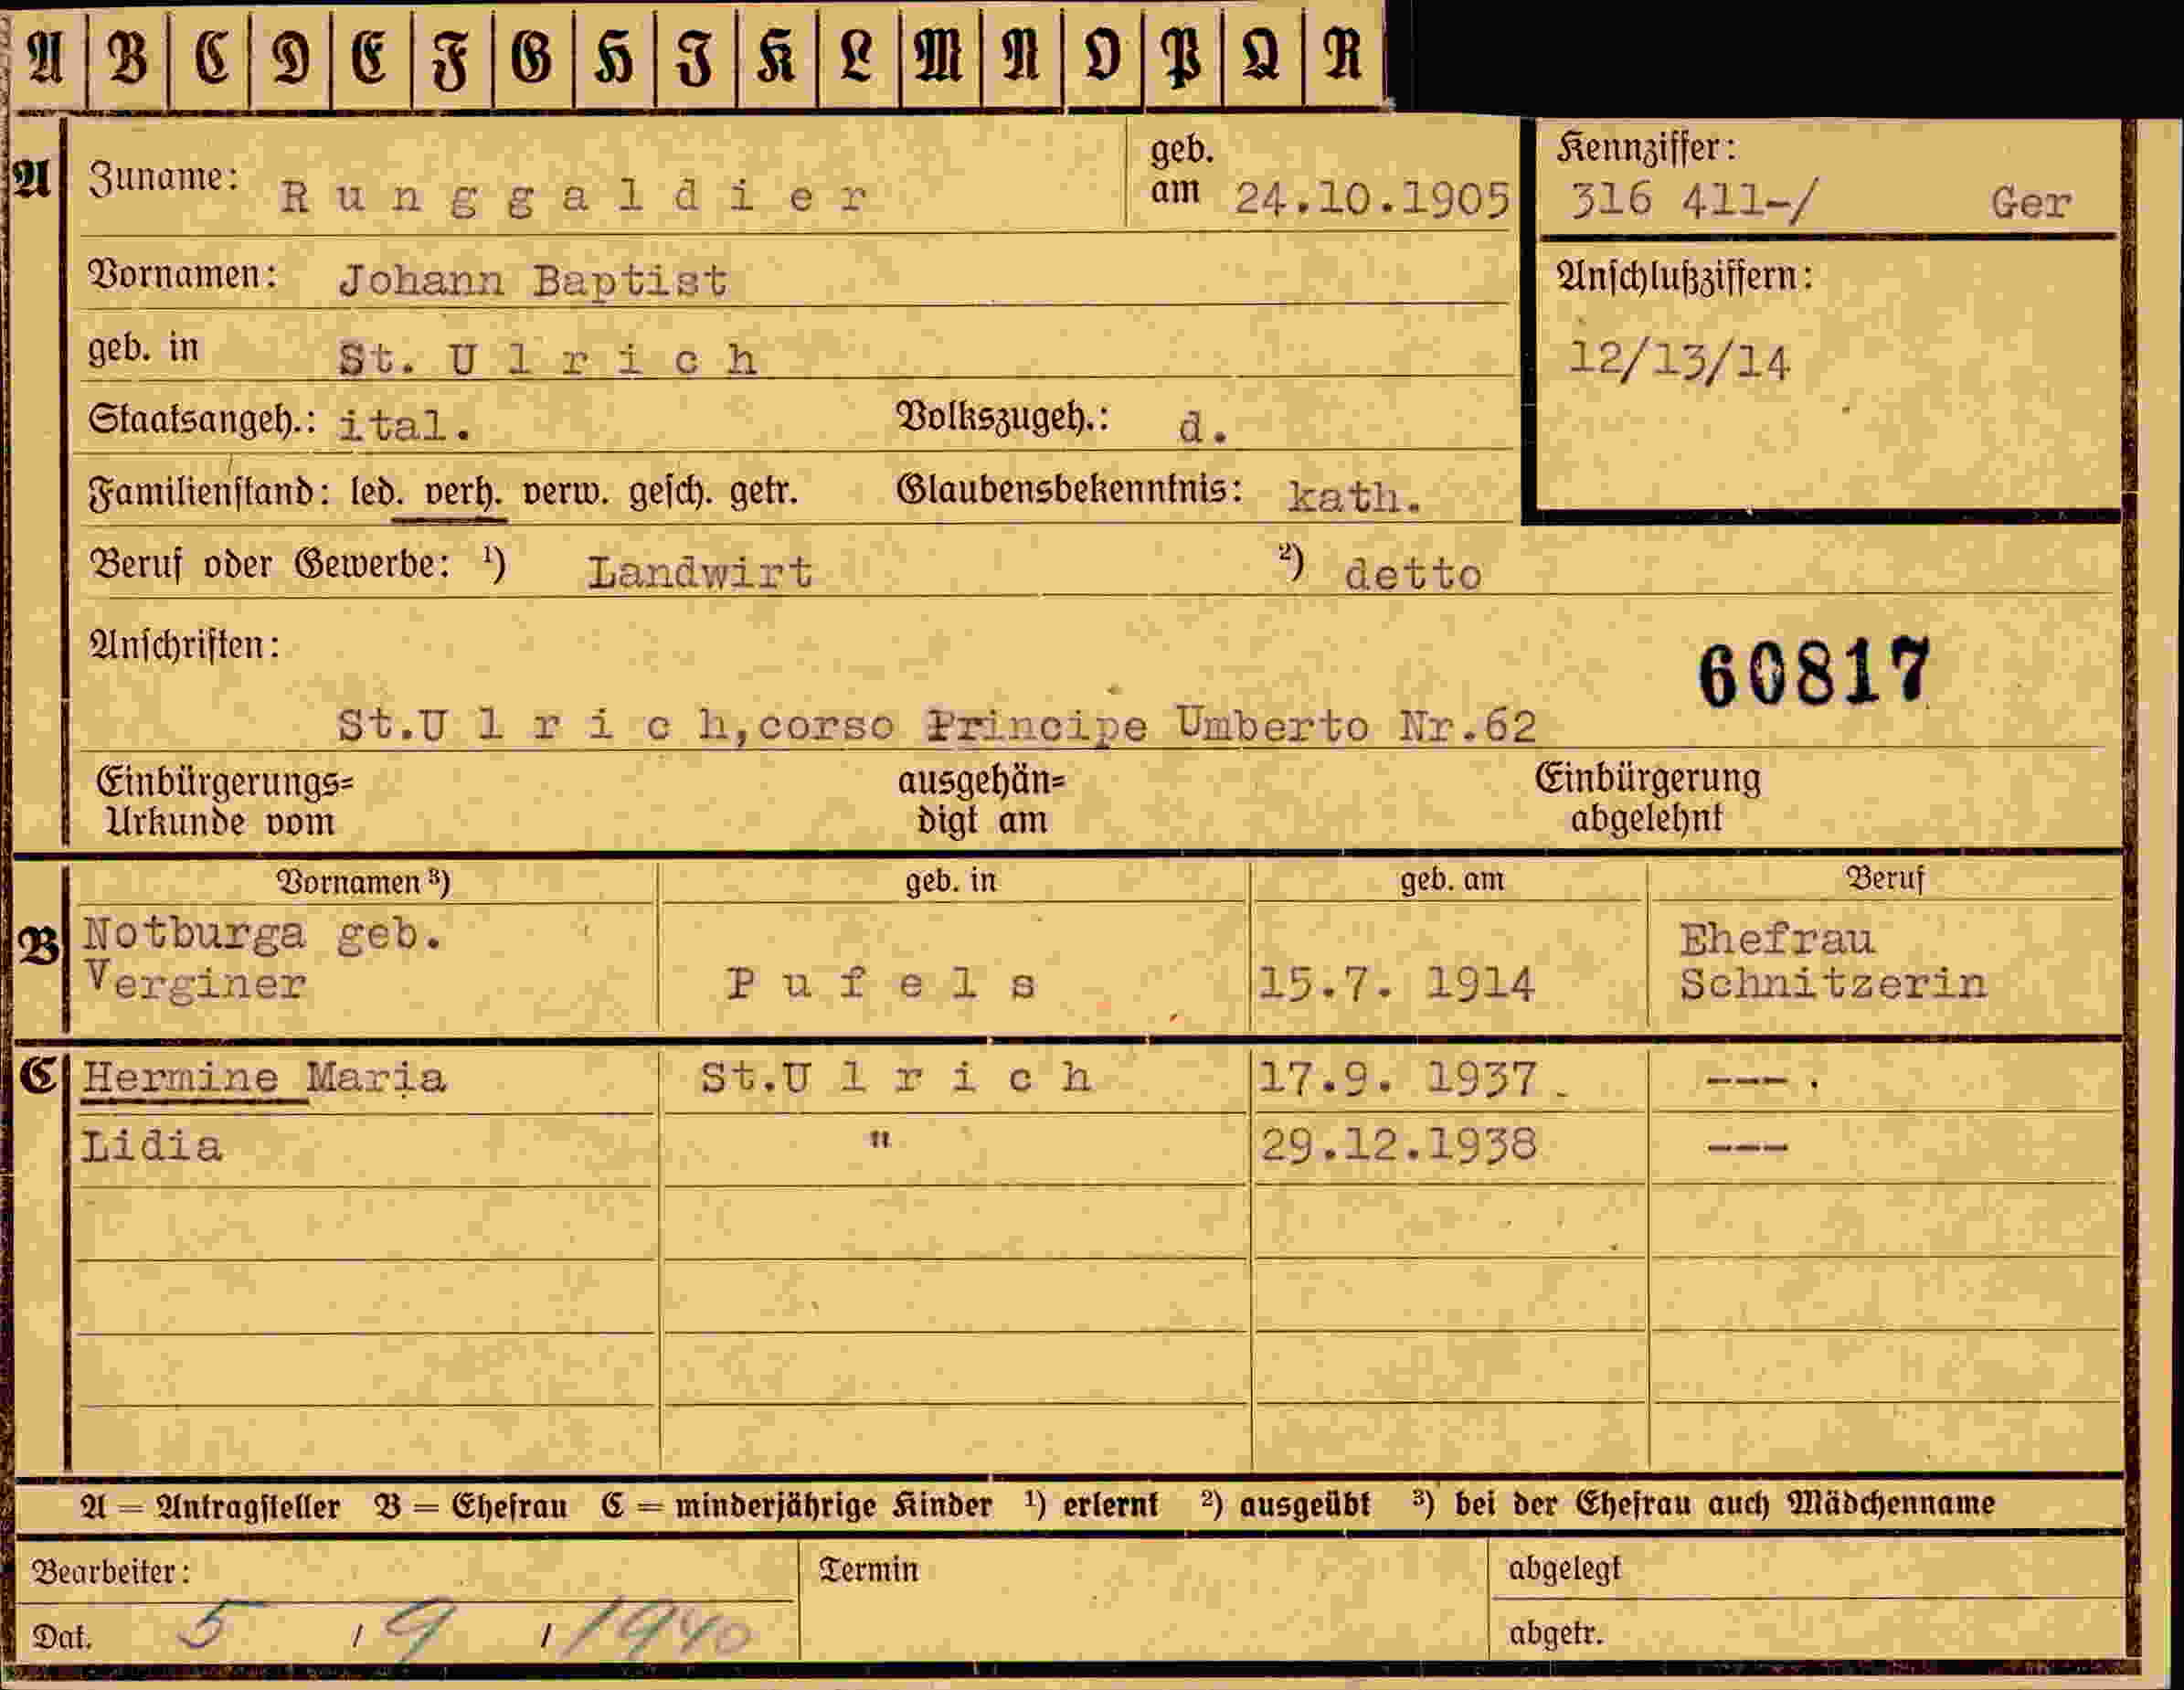 A B C D E F G H I K L M N O P Q R
A Zuname: Runggaldier geb. am 24.10.1905 Kennziffer: 316 411-/ Ger
Vornamen: Johann Baptist Anschlußziffern:
geb. in St. Ulrich 12/13/14
Staatsangeh.: ital. Volkszugeh.: d.
Familienstand: led. verh. verw. gesch. getr. Glaubensbekenntnis: kath.
Beruf oder Gewerbe: ¹) Landwirt ²) detto
Anschriften: 60817
St.Ulrich,corso Principe Umberto Nr.62
Einbürgerungs= ausgehän= Einbürgerung
Urkunde vom digt am abgelehnt
Vornamen ³) geb. in geb. am Beruf
B Notburga geb. Ehefrau
Verginer Pufels 15.7. 1914 Schnitzerin
C Hermine Maria St.Ulrich 17.9. 1937. ---.
Lidia " 29.12.1938 ---
A = Antragsteller B = Ehefrau C = minderjährige Kinder ¹) erlernt ²) ausgeübt ³) bei der Ehefrau auch Mädchenname
Bearbeiter: Termin abgelegt
Dat. 5 / 9 / 1940 abgetr.